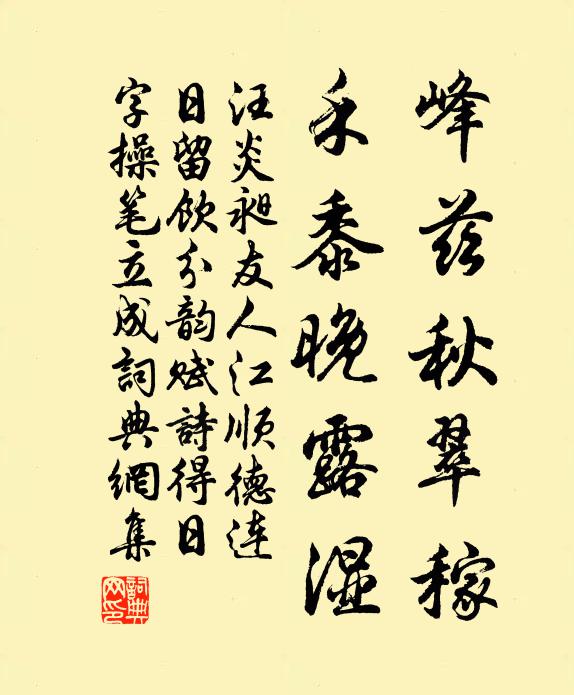 峰茲秋翠稼
禾黍晚露湿
汪炎昶友人江顺德连
日留饮分韵赋詩得日
字操笔立成詞典網集
詞典网印